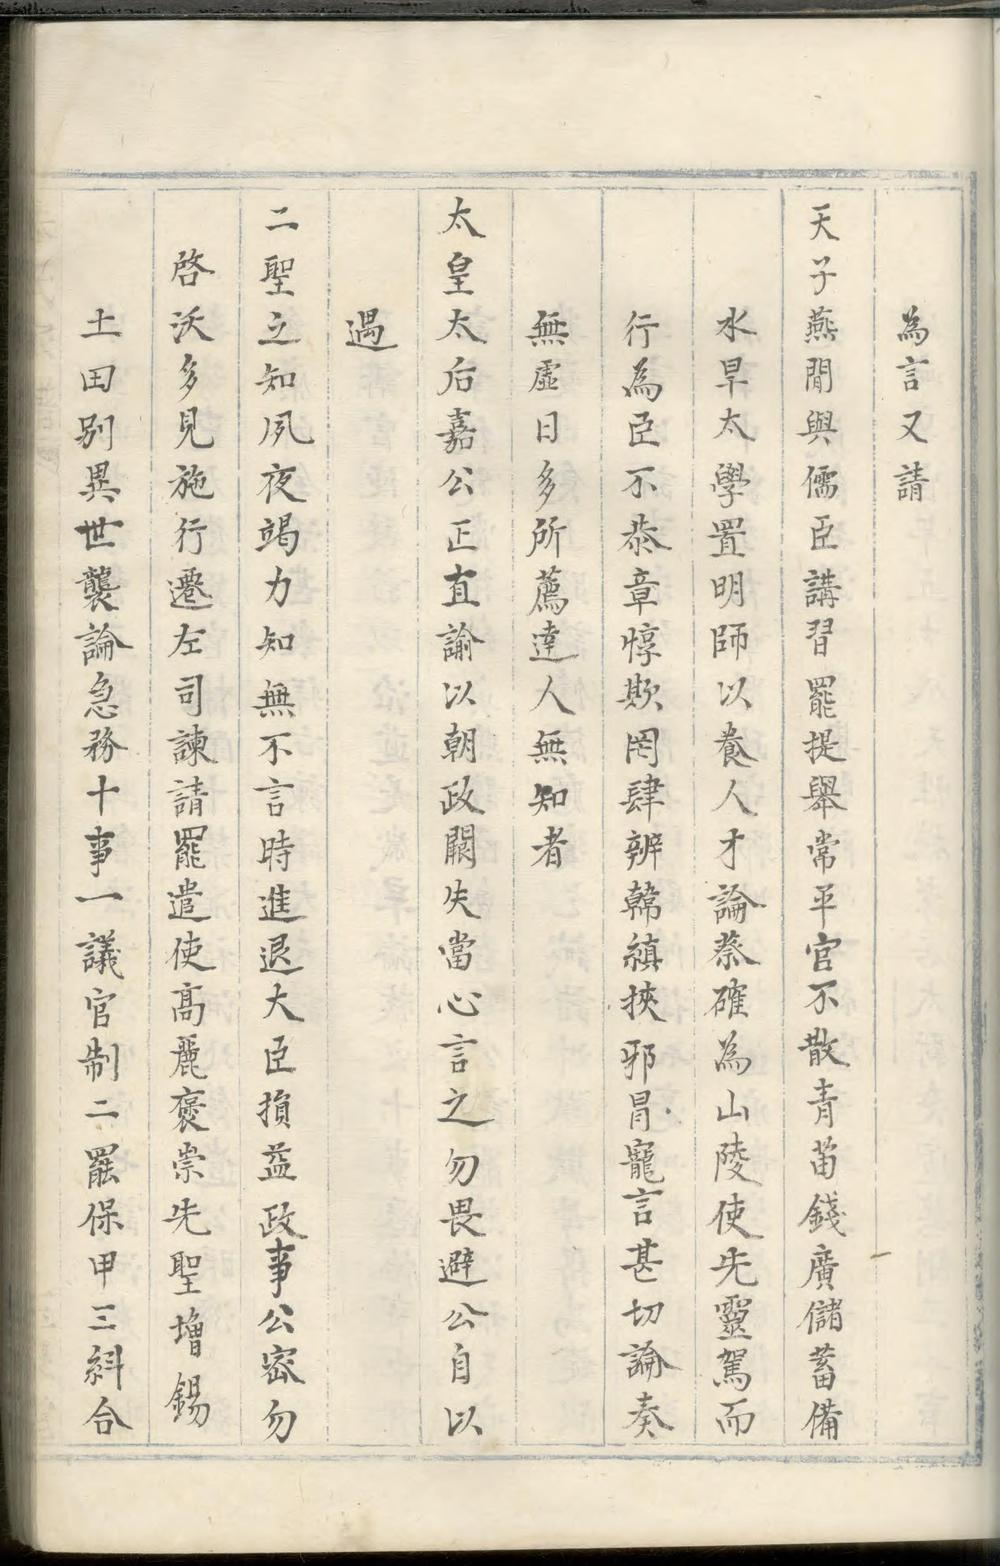 為言又請
天子燕閒與儒臣講習罷提舉常平官不散青苗錢廣儲蓄備
水旱太學置明師以養人才論蔡確為山陵使先靈駕而
行為臣不恭章惇欺罔肆辨韓縝挾邪冐寵言甚切論奏
無虛日多所薦達人無知者
太皇太后嘉公正直諭以朝政闕失當心言之勿畏避公自以
遇
二聖之知夙夜竭力知無不言時進退大臣損益政事公密勿
啓沃多見施行遷左司諫請罷遣使高麗褒崇先聖增錫
土田別異世襲論急務十事一議官制二罷保甲三糾合